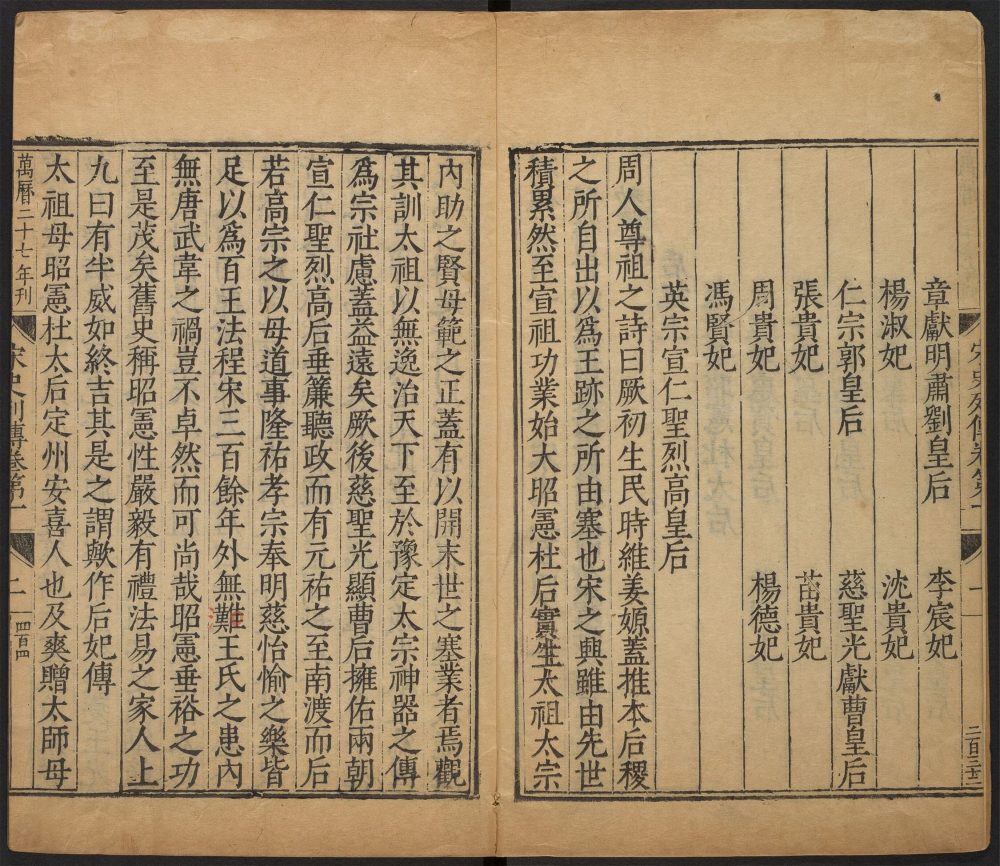 宋史列傳卷第一
一
章獻明肅劉皇后　李宸妃
楊淑妃　沈貴妃
仁宗郭皇后　慈聖光獻曹皇后
張貴妃　苗貴妃
周貴妃　楊德妃
馮賢妃
英宗宣仁聖烈高皇后
周人尊祖之詩曰厥初生民時維姜嫄蓋推本后稷
之所自出以爲王跡之所由塞也宋之興雖由先世
積累然至宣祖功業始大昭憲杜后實生太祖太宗
內助之賢母範之正蓋有以開末世之塞業者焉觀
其訓太祖以無逸治天下至於豫定太宗神器之傳
爲宗社慮蓋益遠矣厥後慈聖光顯曹后擁佑兩朝
宣仁聖烈高后垂簾聽政而有元祐之至南渡而后
若高宗之以母道事隆祐孝宗奉明慈怡愉之樂皆
足以爲百王法程宋三百餘年外無難王氏之患內
無唐武韋之禍豈不卓然而可尚哉昭憲垂裕之功
至是茂矣舊史稱昭憲性嚴毅有禮法易之家人上
九曰有半威如終吉其是之謂歟作后妃傳
太祖母昭憲杜太后定州安喜人也及爽贈太師母
萬曆二十七年刊
宋史列傳卷第一
二
四百四